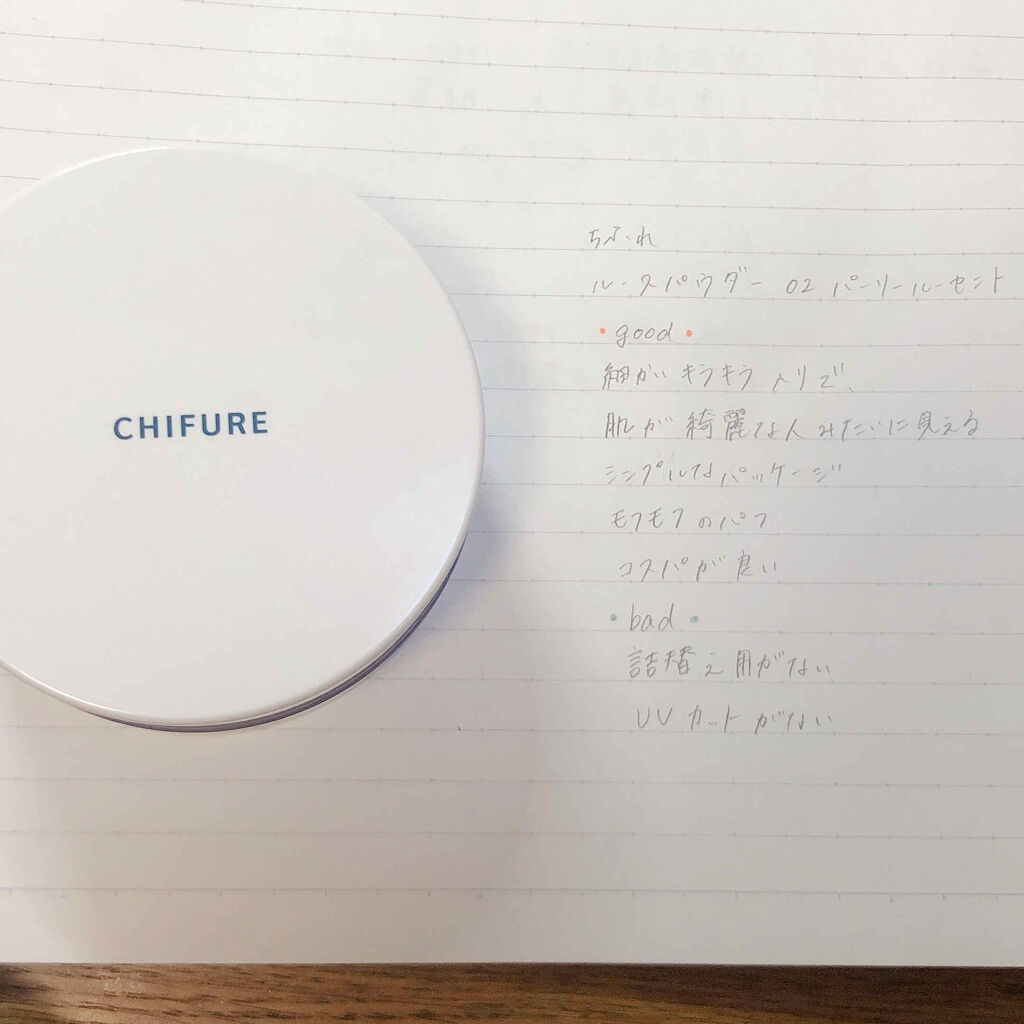 CHIFURE
ちふれ
ルースパウダー 02 パーリールーセント
・good・
細かいキラキラ入りで、
肌が綺麗な人みたいに見える
シンプルなパッケージ
モフモフのパフ
コスパが良い
・bad・
詰替え用がない
UVカットがない